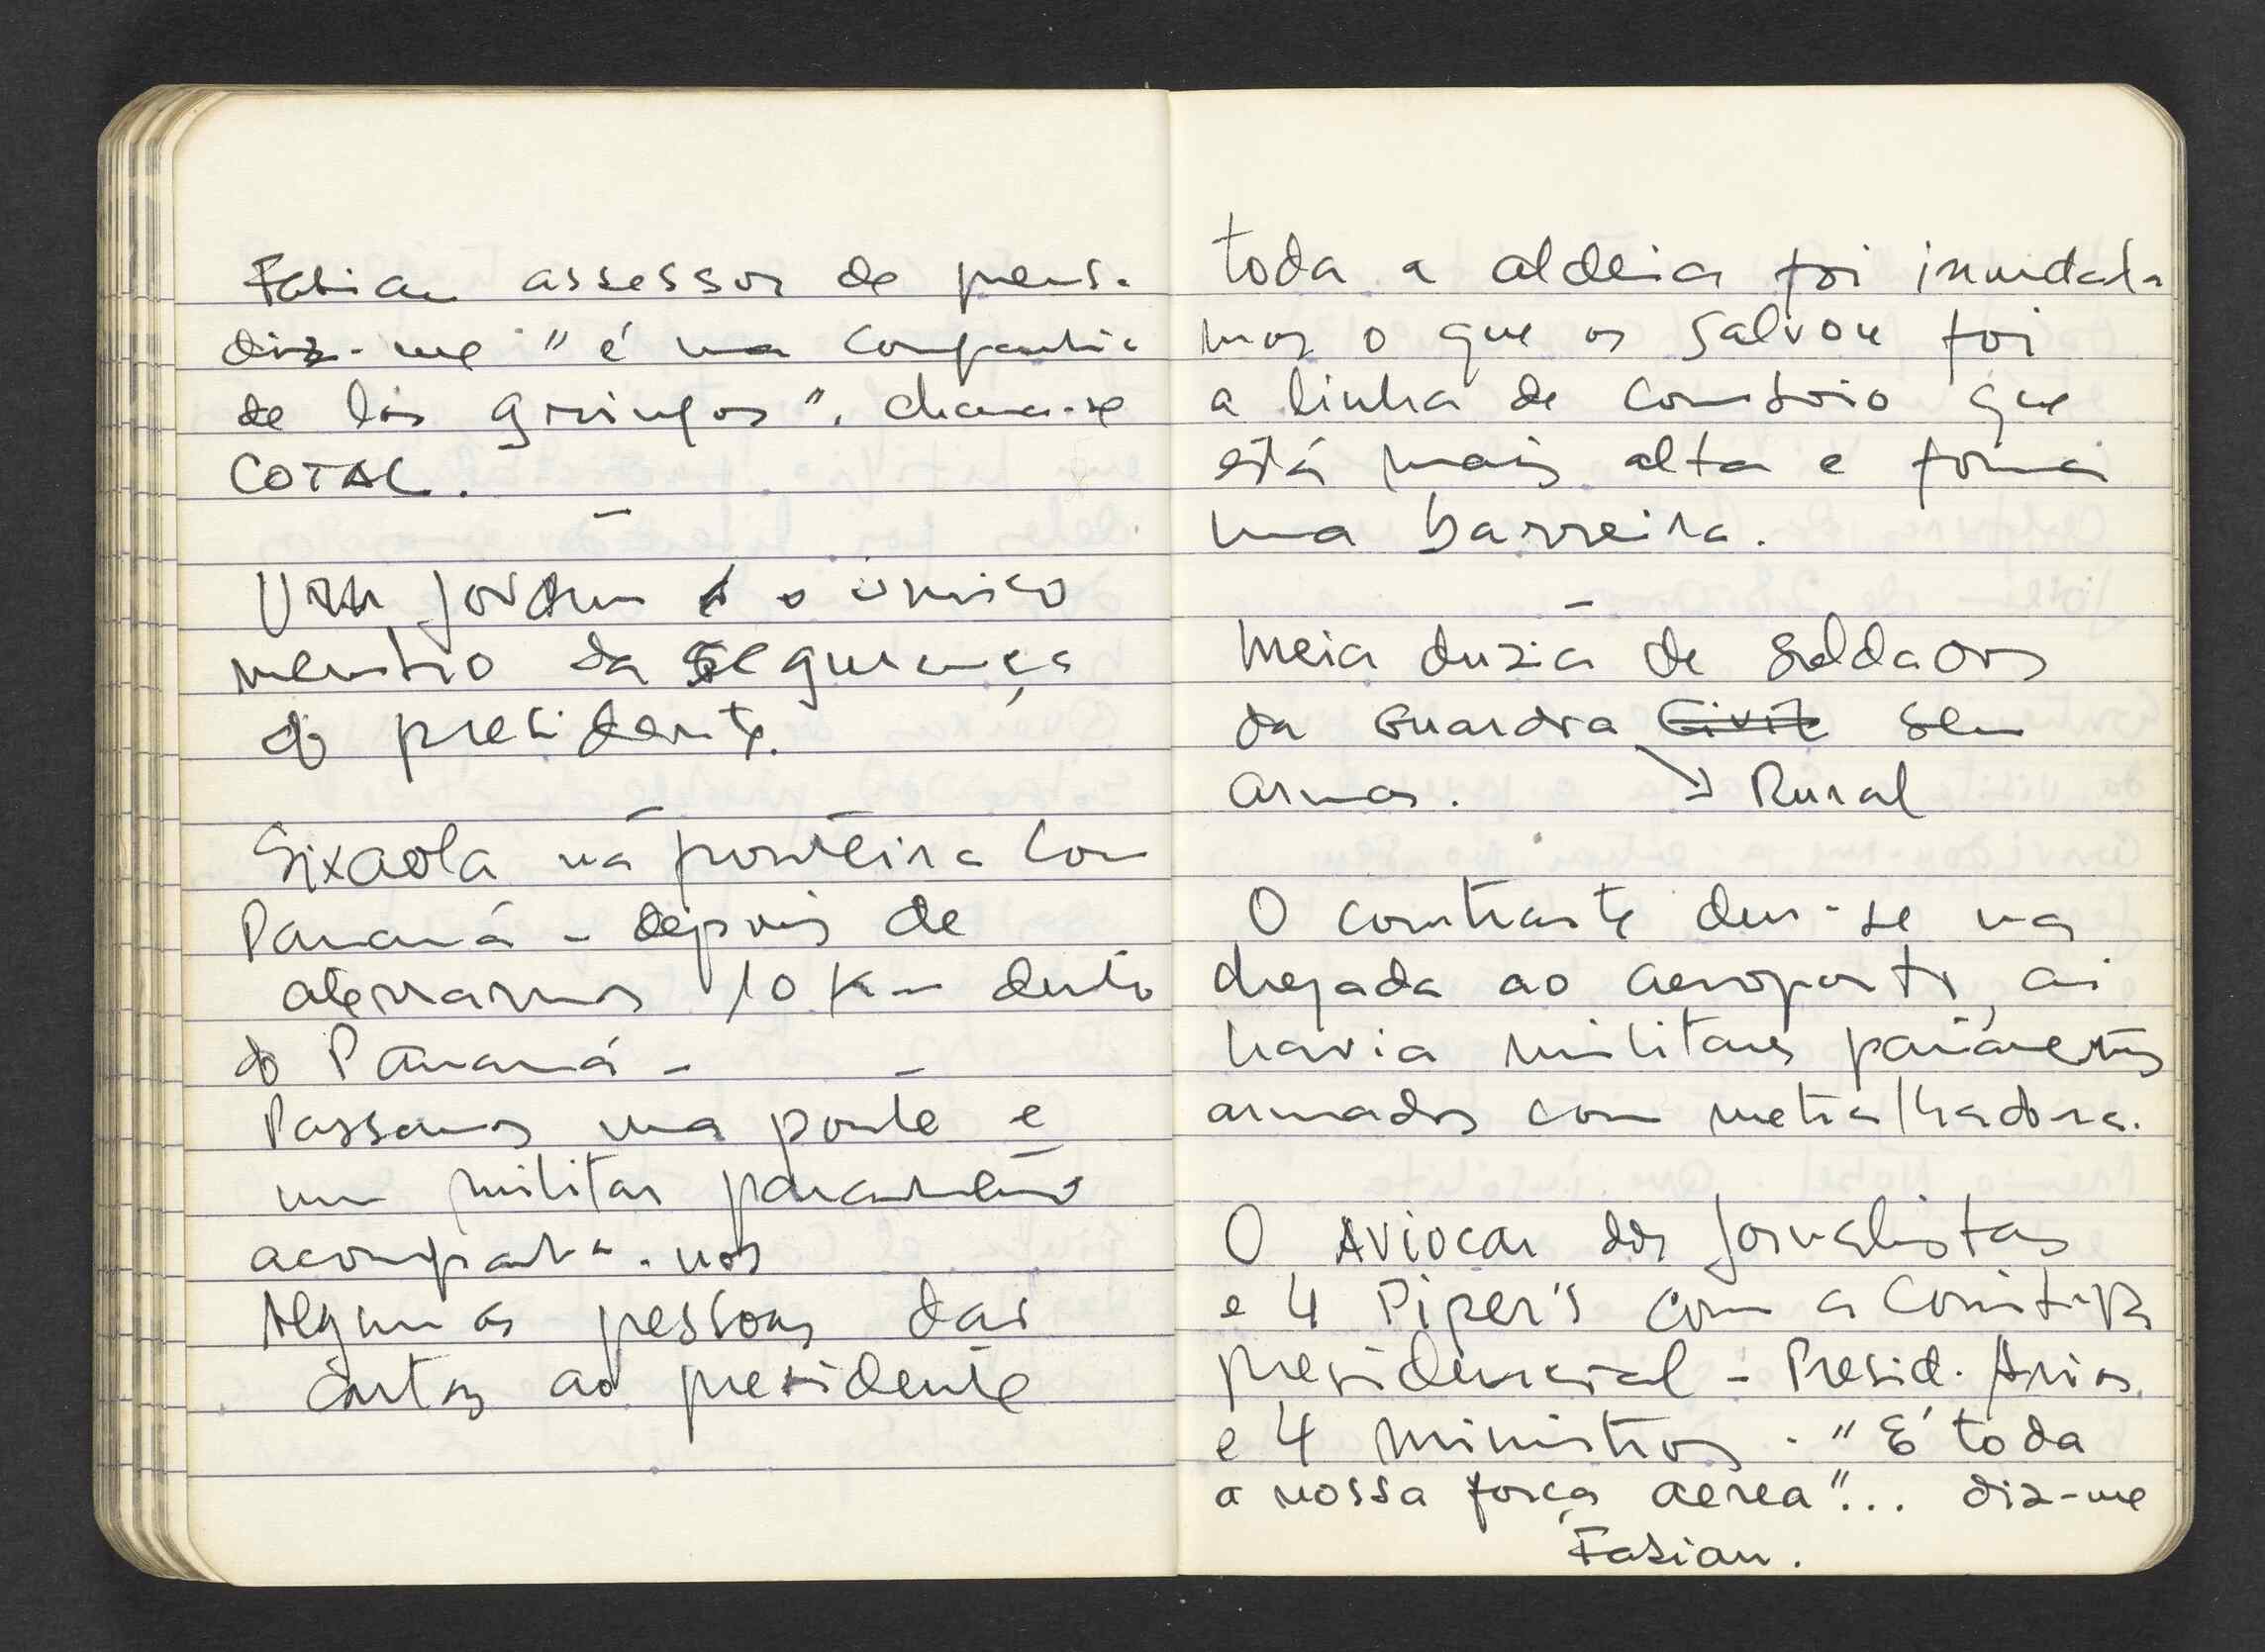 Fabian assessor de prens.
diz-me "é uma companhia
de los gringos". chama-se
COTAL.
–
Um jovem é o único
membro da segurança
do presidente.
–
Sixaola na fronteira com
Panamá – depois de
aterrarmos 10 Km dentro
do Panamá –
–
Passamos uma ponte e
um militar panameño
acompanha-nos
Algumas pessoas dão
cartas ao presidente
toda a aldeia foi inundada
mas o que os salvou foi
a linha de comboio que
está mais alta e forma
uma barreira.
–
Meia duzia de soldados
da Guardia Civil sem
armas. → Rural
O contraste deu-se na
chegada ao aeroporto, ai
havia militares panamenhos
armados com metralhadora.
O AVIOCAR dos jornalistas
e 4 Piper's com a comitiva
presidencial – Presid. Arias
e 4 ministros. "É toda
a nossa força aerea"... diz-me
Fabian.